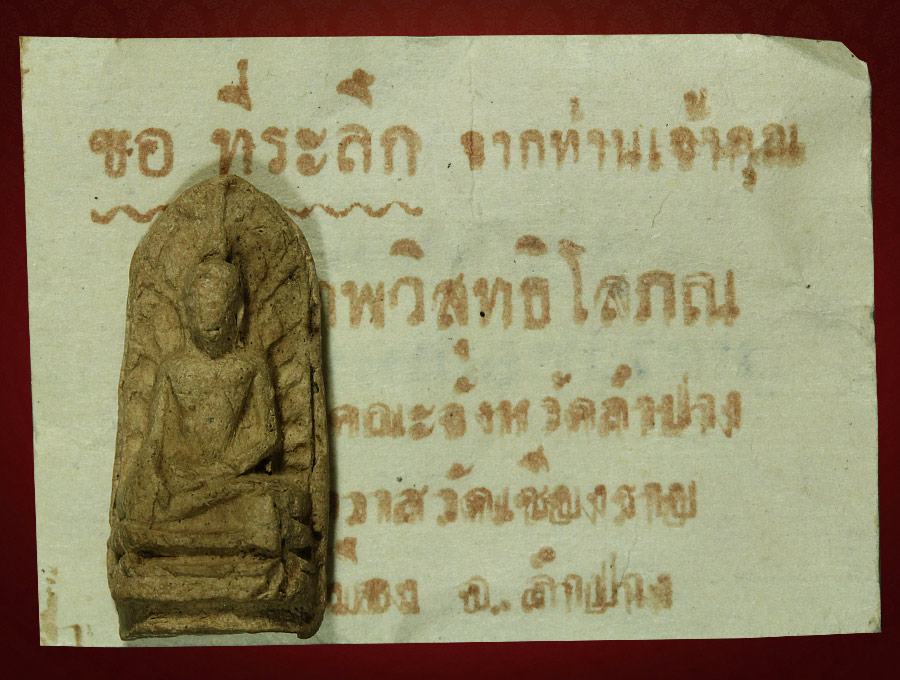 ซอ ที่ระลึก จากท่านเจ้าคุณ
พวิสุทธิโสภณ
คณะจังหวัดลำปาง
วาสวัดเชียงราย
เมือง จ.ลำปาง